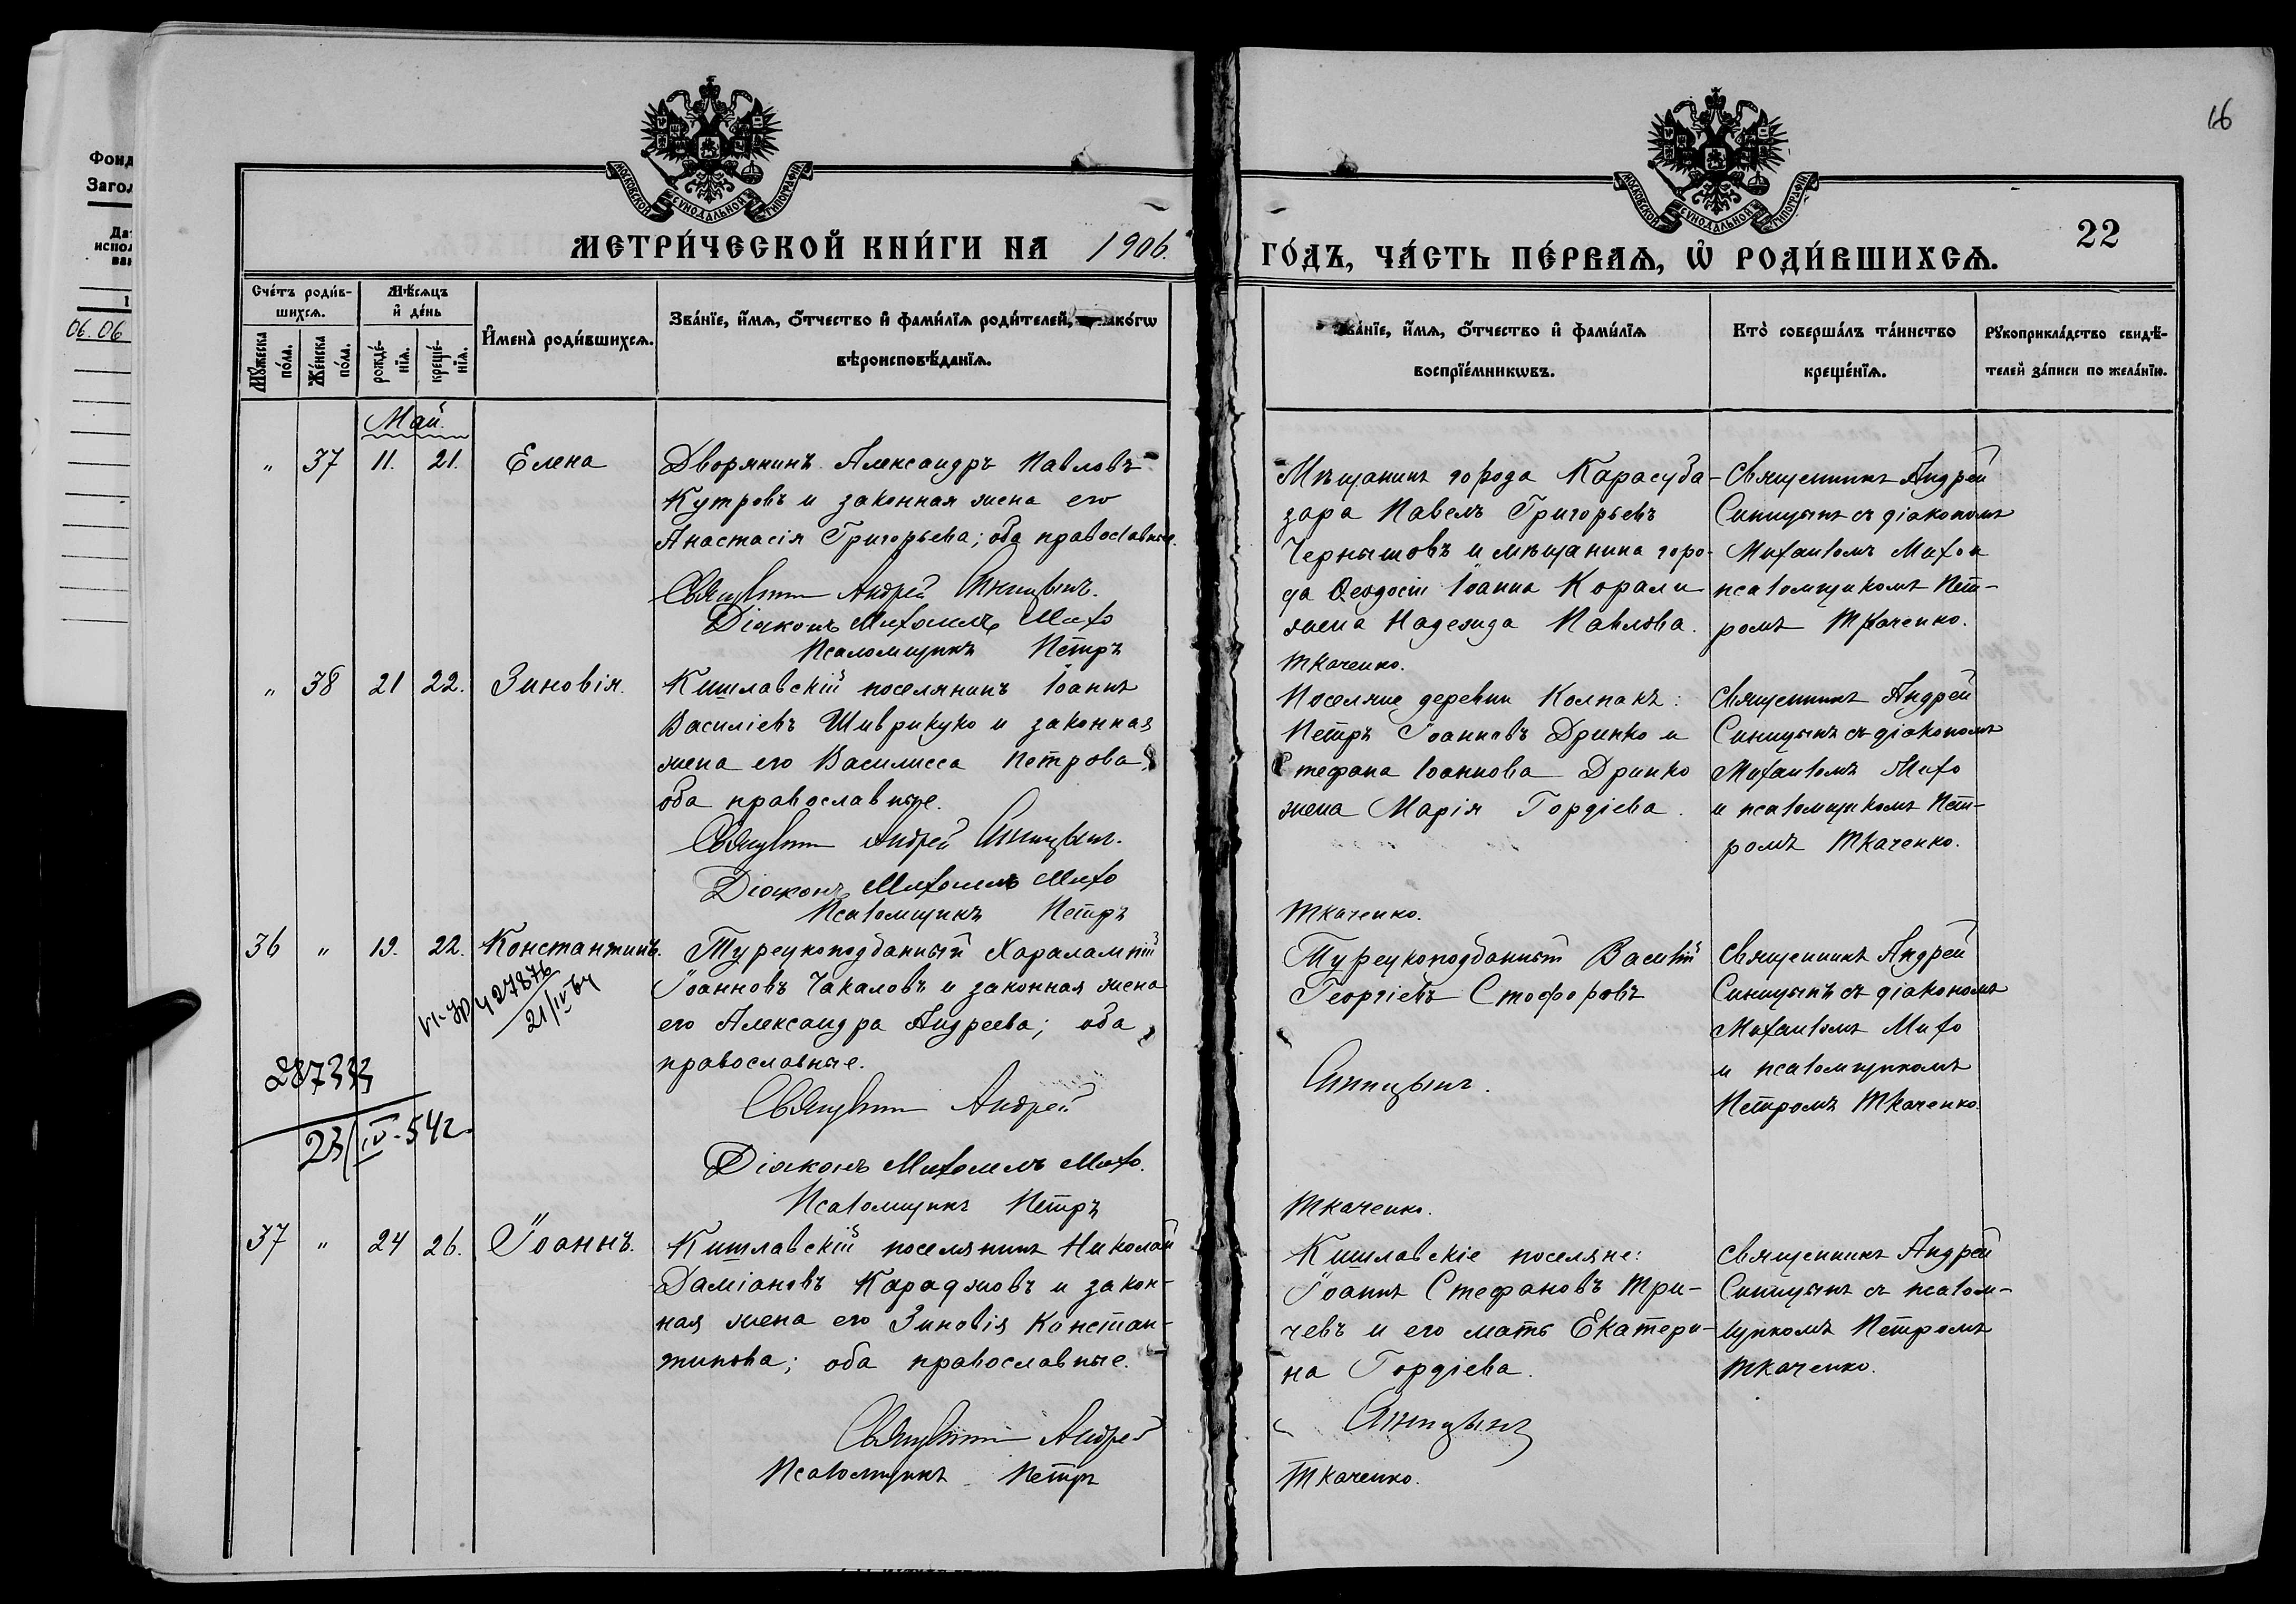 Фонд
Загол
Дат
испол
ван
1
06.06
16
МОСКОВСКОЙ СѴНОДАЛЬНОЙ ТИПОГРАФІИ
МОСКОВСКОЙ СѴНОДАЛЬНОЙ ТИПОГРАФІИ
МЕТРИ́ЧЕСКОЙ КНИ́ГИ НА 1906. ГО́ДЪ, ЧА́СТЬ ПЕ́РВАѦ, Ѡ҆ РОДИ́ВШИХСѦ.
22
Сче́тъ роди́в-
шихсѧ.
Мѹ́жеска
по́ла.
Же́нска
по́ла.
Мѣ́сѧцъ
и҆ де́нь
рожде́-
нїѧ.
креще́-
нїѧ.
И҆мена̀ роди́вшихсѧ.
Зва́нїе, и҆́мѧ, ѻ҆́тчество и҆ фами́лїѧ роди́телей, како́гѡ
вѣроисповѣ́данїѧ.
Зва́нїе, и҆́мѧ, ѻ҆́тчество и҆ фами́лїѧ
воспрїе́мникѡвъ.
Кто̀ соверша́лъ та́инство
креще́нїѧ.
Рѹкоприкла́дство свидѣ́-
телей за́писи по жела́нїю.
Май.
" 37 11. 21. Елена
Дворянинъ Александръ Павловъ
Кутровъ и законная жена его
Анастасія Григорьева; оба православные.
Священникъ Андрей Синицынъ.
Діаконъ Михаилъ Михо
Псаломщикъ Петръ
Ткаченко.
Мѣщанинъ города Карасуба-
зара Павелъ Григорьевъ
Чернышовъ и мѣщанина горо-
да Ѳеодосіи Іоанна Корали
жена Надежда Павлова.
Священникъ Андрей
Синицынъ съ діакономъ
Михаиломъ Михо и
псаломщикомъ Пет-
ромъ Ткаченко.
" 38 21 22. Зиновія.
Кишлавскій поселянинъ Іоаннъ
Василіевъ Шиврикуко и законная
жена его Василисса Петрова;
оба православные.
Священникъ Андрей Синицынъ.
Діаконъ Михаилъ Михо
Псаломщикъ Петръ
Ткаченко.
Поселяне деревни Колпакъ:
Петръ Іоанновъ Дринко и
Стефана Іоаннова Дринко
жена Марія Гордіева.
Священникъ Андрей
Синицынъ съ діакономъ
Михаиломъ Михо
и псаломщикомъ Пет-
ромъ Ткаченко.
36 " 19. 22. Константинъ.
27876
21/IV-64
287333
23/IV-54г.
Турецкоподданный Харалампій
Іоанновъ Чакаловъ и законная жена
его Александра Андреева; оба
православные.
Священникъ Андрей
Синицынъ.
Діаконъ Михаилъ Михо.
Псаломщикъ Петръ
Ткаченко.
Турецкоподданный Василій
Георгіевъ Стофоровъ
Священникъ Андрей
Синицынъ съ діакономъ
Михаиломъ Михо
и псаломщикомъ
Петромъ Ткаченко.
37 " 24 26. Іоаннъ.
Кишлавскій поселянинъ Николай
Даміановъ Караджовъ и закон-
ная жена его Зиновія Констан-
тинова; оба православные.
Священникъ Андрей
Синицынъ
Псаломщикъ Петръ
Ткаченко.
Кишлавскіе поселяне:
Іоаннъ Стефановъ Три-
чевъ и его мать Екатери-
на Гордіева.
Священникъ Андрей
Синицынъ съ псалом-
щикомъ Петромъ
Ткаченко.